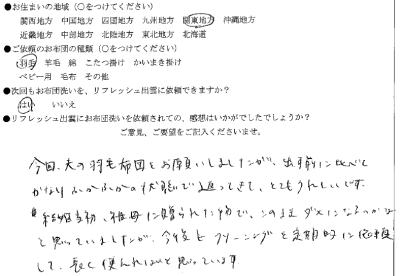 ●お住まいの地域（○をつけてください）
関西地方 中国地方 四国地方 九州地方 関東地方 沖縄地方
近畿地方 中部地方 北陸地方 東北地方 北海道
●ご依頼のお布団の種類（○をつけてください）
羽毛 羊毛 綿 こたつ掛け かいまき掛け
ベビー用 毛布 その他
●次回もお布団洗いを、リフレッシュ出雲に依頼できますか？
はい いいえ
●リフレッシュ出雲にお布団洗いを依頼されての、感想はいかがでしたでしょうか？
ご意見、ご要望をご記入くださいませ。
今回、夫の羽毛布団をお願いしましたが、出す前に比べて
かなりふかふかの状態で返ってきて、とてもうれしいです。
結婚当初、祖母に贈られた物で、このままダメになるのかな
と思っていましたが、今後もクリーニングを定期的に依頼
して、長く使えればと思っています